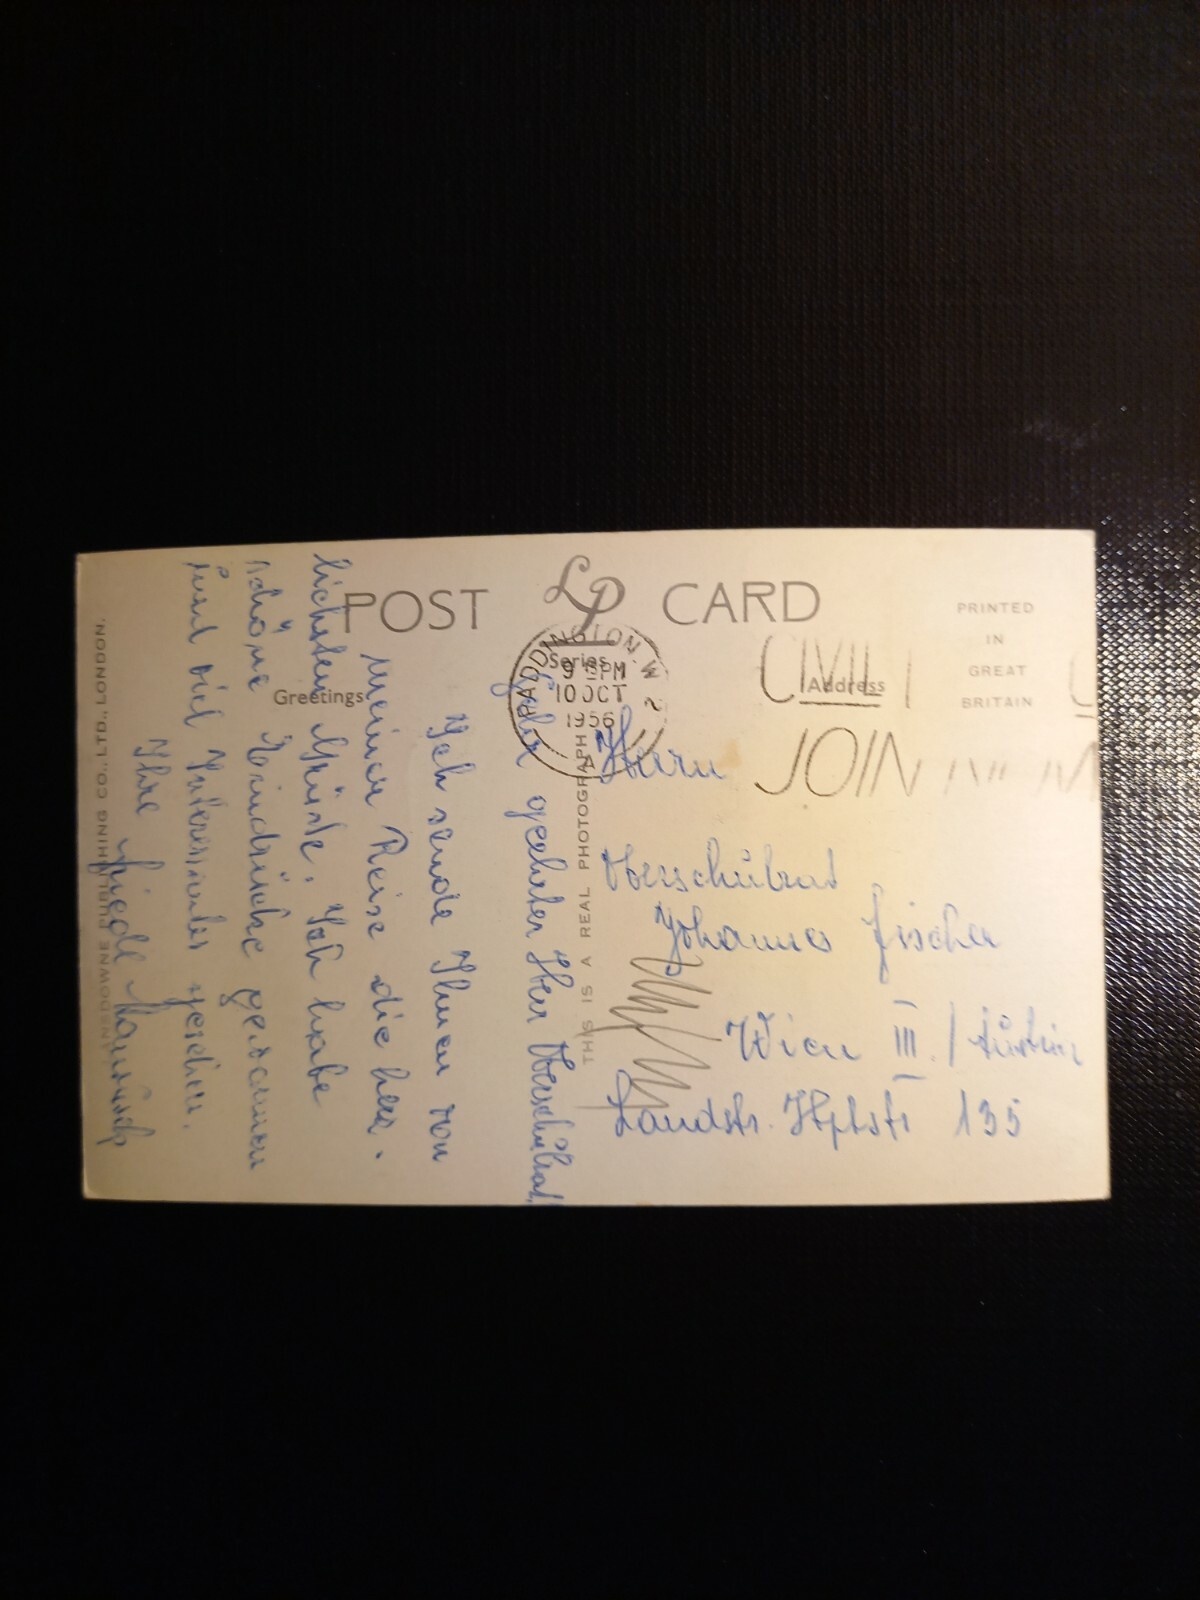 POST LP CARD
Series
Greetings
Address
PRINTED
IN
GREAT
BRITAIN
PADDINGTON W 2
9 15 PM
10 OCT
1956
CIVIL
JOIN
THIS IS A REAL PHOTOGRAPH
LANSDOWNE PUBLISHING CO., LTD., LONDON.
Sehr geehrter Herr Oberschulrat!
Ich sende Ihnen von
meiner Reise die herz-
lichsten Grüße. Ich habe
schöne Eindrücke gewonnen
und viel Interessantes gesehen.
Ihre Friedl
Herrn
Oberschulrat
Johannes Fischer
Wien III. / Austria
Landstr. Hptstr 135